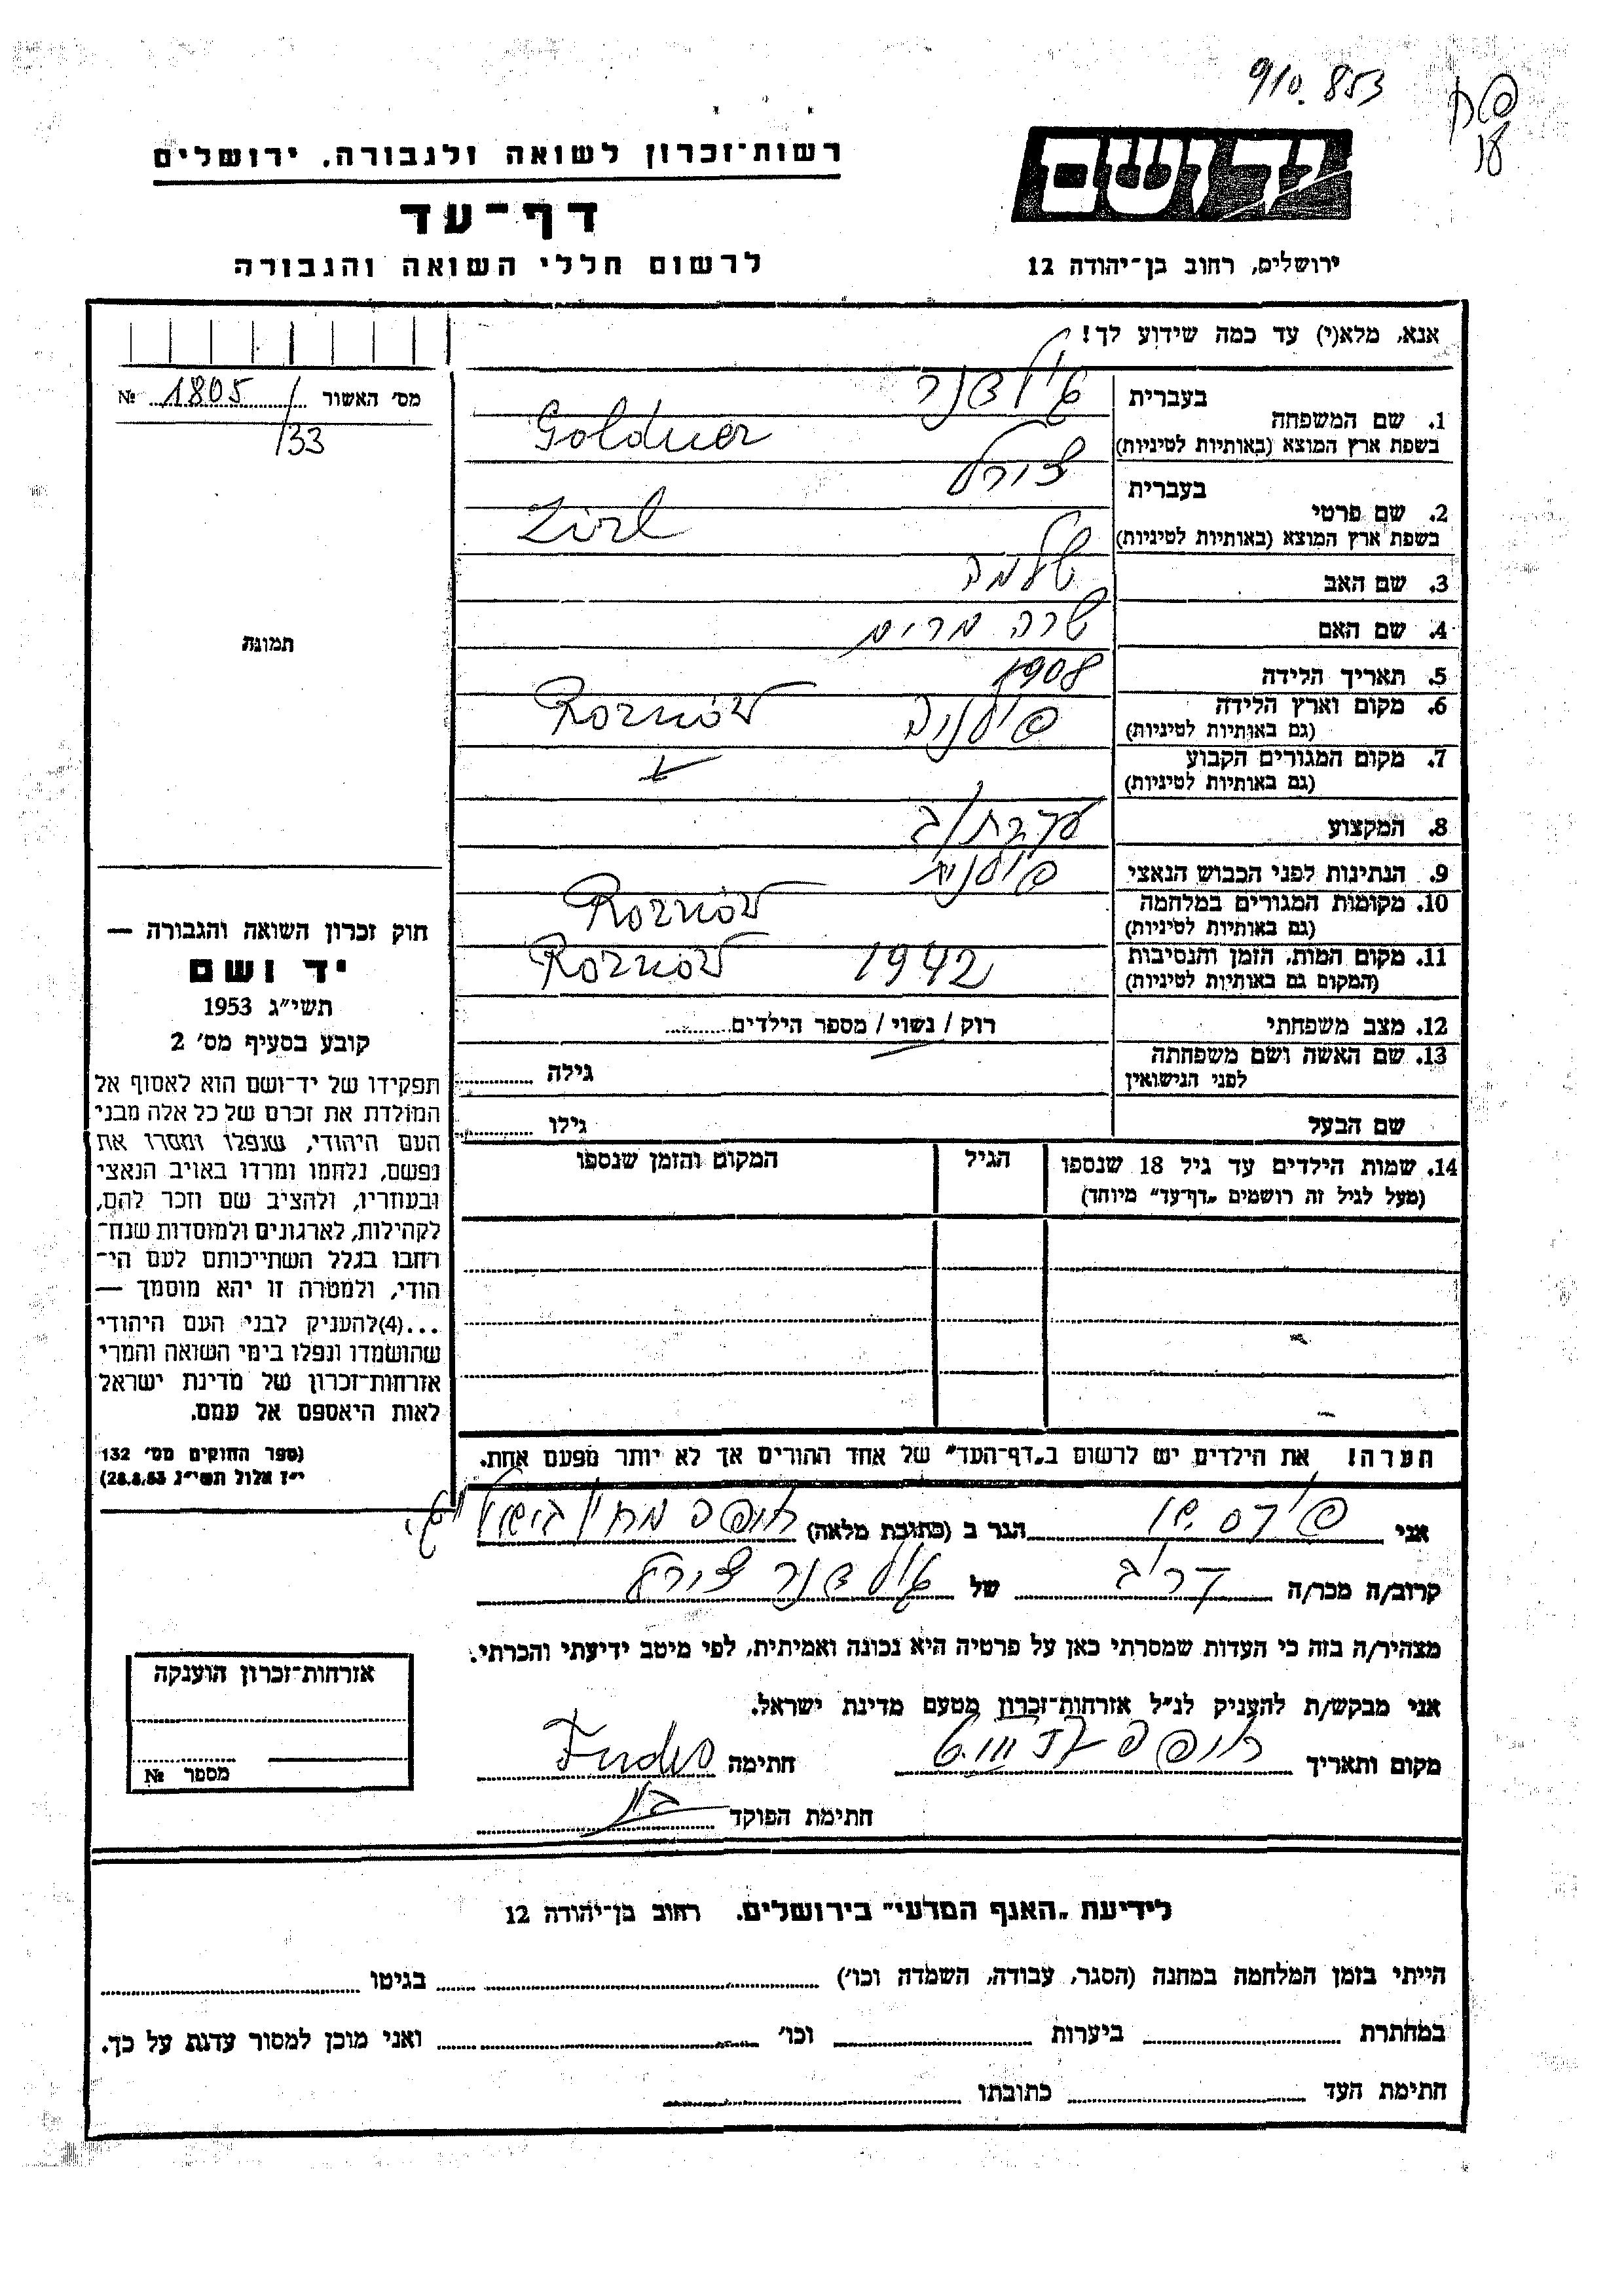 910.853
רשות־זכרון לשואה ולגבורה, ירושלים
יד ושם
דף־עד
לרשום חללי השואה והגבורה
ירושלים, רחוב בן־יהודה 12
אנא, מלא(י) עד כמה שידוע לך!
מס' האשור № 1805
/33
תמונה
1. שם המשפחה
בעברית גולדנר
בשפת ארץ המוצא (באותיות לטיניות) Goldner
2. שם פרטי
בעברית צירל
בשפת ארץ המוצא (באותיות לטיניות) Zirl
3. שם האב שלמה
4. שם האם שרה מרים
5. תאריך הלידה 1908
6. מקום וארץ הלידה פולניה Roznów
(גם באותיות לטיניות)
7. מקום המגורים הקבוע
(גם באותיות לטיניות)
8. המקצוע עקרת/ב
9. הנתינות לפני הכבוש הנאצי פולנית
10. מקומות המגורים במלחמה Roznów
(גם באותיות לטיניות)
11. מקום המות, הזמן והנסיבות 1942 Roznów
(המקום גם באותיות לטיניות)
12. מצב משפחתי רוק / נשוי / מספר הילדים
13. שם האשה ושם משפחתה
לפני הנישואין
גילה
שם הבעל גילו
14. שמות הילדים עד גיל 18 שנספו הגיל המקום והזמן שנספו
(מעל לגיל זה רושמים „דף־עד" מיוחד)
הערה! את הילדים יש לרשום ב„דף־העד" של אחד ההורים אך לא יותר מפעם אחת.
חוק זכרון השואה והגבורה —
יד ושם
תשי"ג 1953
קובע בסעיף מס' 2
תפקידו של יד־ושם הוא לאסוף אל
המולדת את זכרם של כל אלה מבני
העם היהודי, שנפלו ומסרו את
נפשם, נלחמו ומרדו באויב הנאצי
ובעוזריו, ולהציב שם וזכר להם,
לקהילות, לארגונים ולמוסדות שנח־
רחבו בגלל השתייכותם לעם הי־
הודי, ולמטרה זו יהא מוסמך —
...(4)להעניק לבני העם היהודי
שהושמדו ונפלו בימי השואה והמרי
אזרחות־זכרון של מדינת ישראל
לאות היאספם אל עמם.
(ספר החוקים מס' 132
י"ז אלול תשי"ג 28.8.53)
אני הגר ב (כתובת מלאה) חיפה
קרוב/ה מכר/ה של גולדנר צירל
מצהיר/ה בזה כי העדות שמסרתי כאן על פרטיה היא נכונה ואמיתית, לפי מיטב ידיעתי והכרתי.
אני מבקש/ת להעניק לנ"ל אזרחות־זכרון מטעם מדינת ישראל.
מקום ותאריך חיפה חתימה
חתימת הפוקד
אזרחות־זכרון הוענקה
מספר №
לידיעת „האגף המדעי" בירושלים. רחוב בן־יהודה 12
הייתי בזמן המלחמה במחנה (הסגר, עבודה, השמדה וכו') בגיטו
במחתרת ביערות וכו' ואני מוכן למסור עדות על כך.
חתימת העד כתובתו